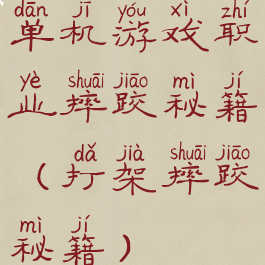 dān jī yóu xì zhí
单机游戏职
yè shuāi jiāo mì jí
业摔跤秘籍
dǎ jià shuāi jiāo
(打架摔跤
mì jí
秘籍)